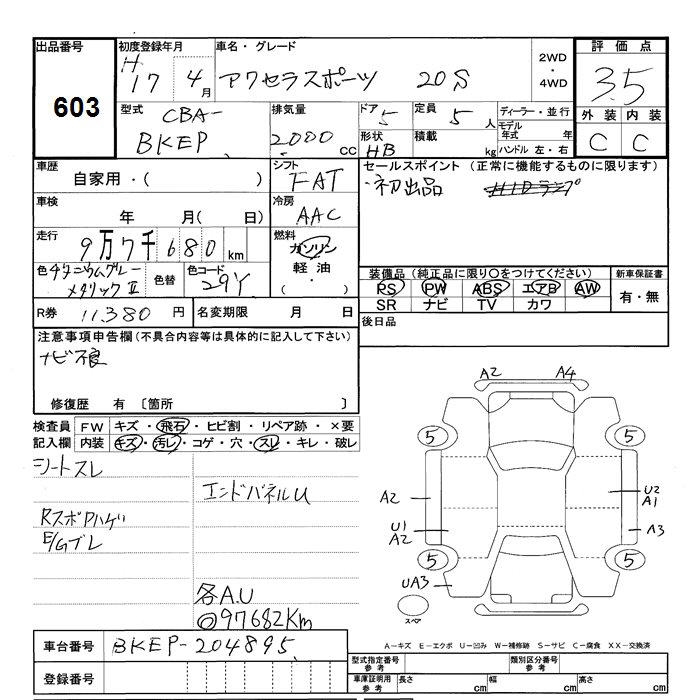 出品番号
603
初度登録年月
H17 4月
車名・グレード
アクセラスポーツ 20S
2WD
・
4WD
評価点
3.5
型式
CBA-
BKEP
排気量
2000 CC
ドア 5
定員 5人
形状 HB
積載 kg
ディーラー・並行
モデル年式 年
ハンドル 左・右
外装 内装
C C
車歴
自家用・( )
シフト
FAT
車検
年 月( 日)
冷房
AAC
セールスポイント (正常に機能するものに限ります)
・初出品
走行
9万7千680km
燃料
ガソリン
軽油
( ・ )
色 チタニウムグレーメタリックⅡ
色替
色コード
29Y
装備品 (純正品に限り○をつけてください)
PS PW ABS エアB AW
SR ナビ TV カワ
新車保証書
有・無
R券 11,380円
名変期限 月 日
後日品
注意事項申告欄(不具合内容等は具体的に記入して下さい)
ナビ不良
修復歴 有 〔箇所 〕
検査員記入欄
FW キズ・飛石・ヒビ割・リペア跡・×要
内装 キズ・汚レ・コゲ・穴・スレ・キレ・破レ
シートスレ
エンドパネルU
RスポPハゲ
E/Gブレ
各A.U
◎97682Km
A2 A4
5 5
A2
U2
A1
U1
A2
A3
5 5
UA3
スペア
車台番号 BKEP-204895
登録番号
A-キズ E-エクボ U-凹み W-補修跡 S-サビ C-腐食 XX-交換済
型式指定番号 参考
類別区分番号 参考
車庫証明用 参考
長さ cm 幅 cm 高さ cm